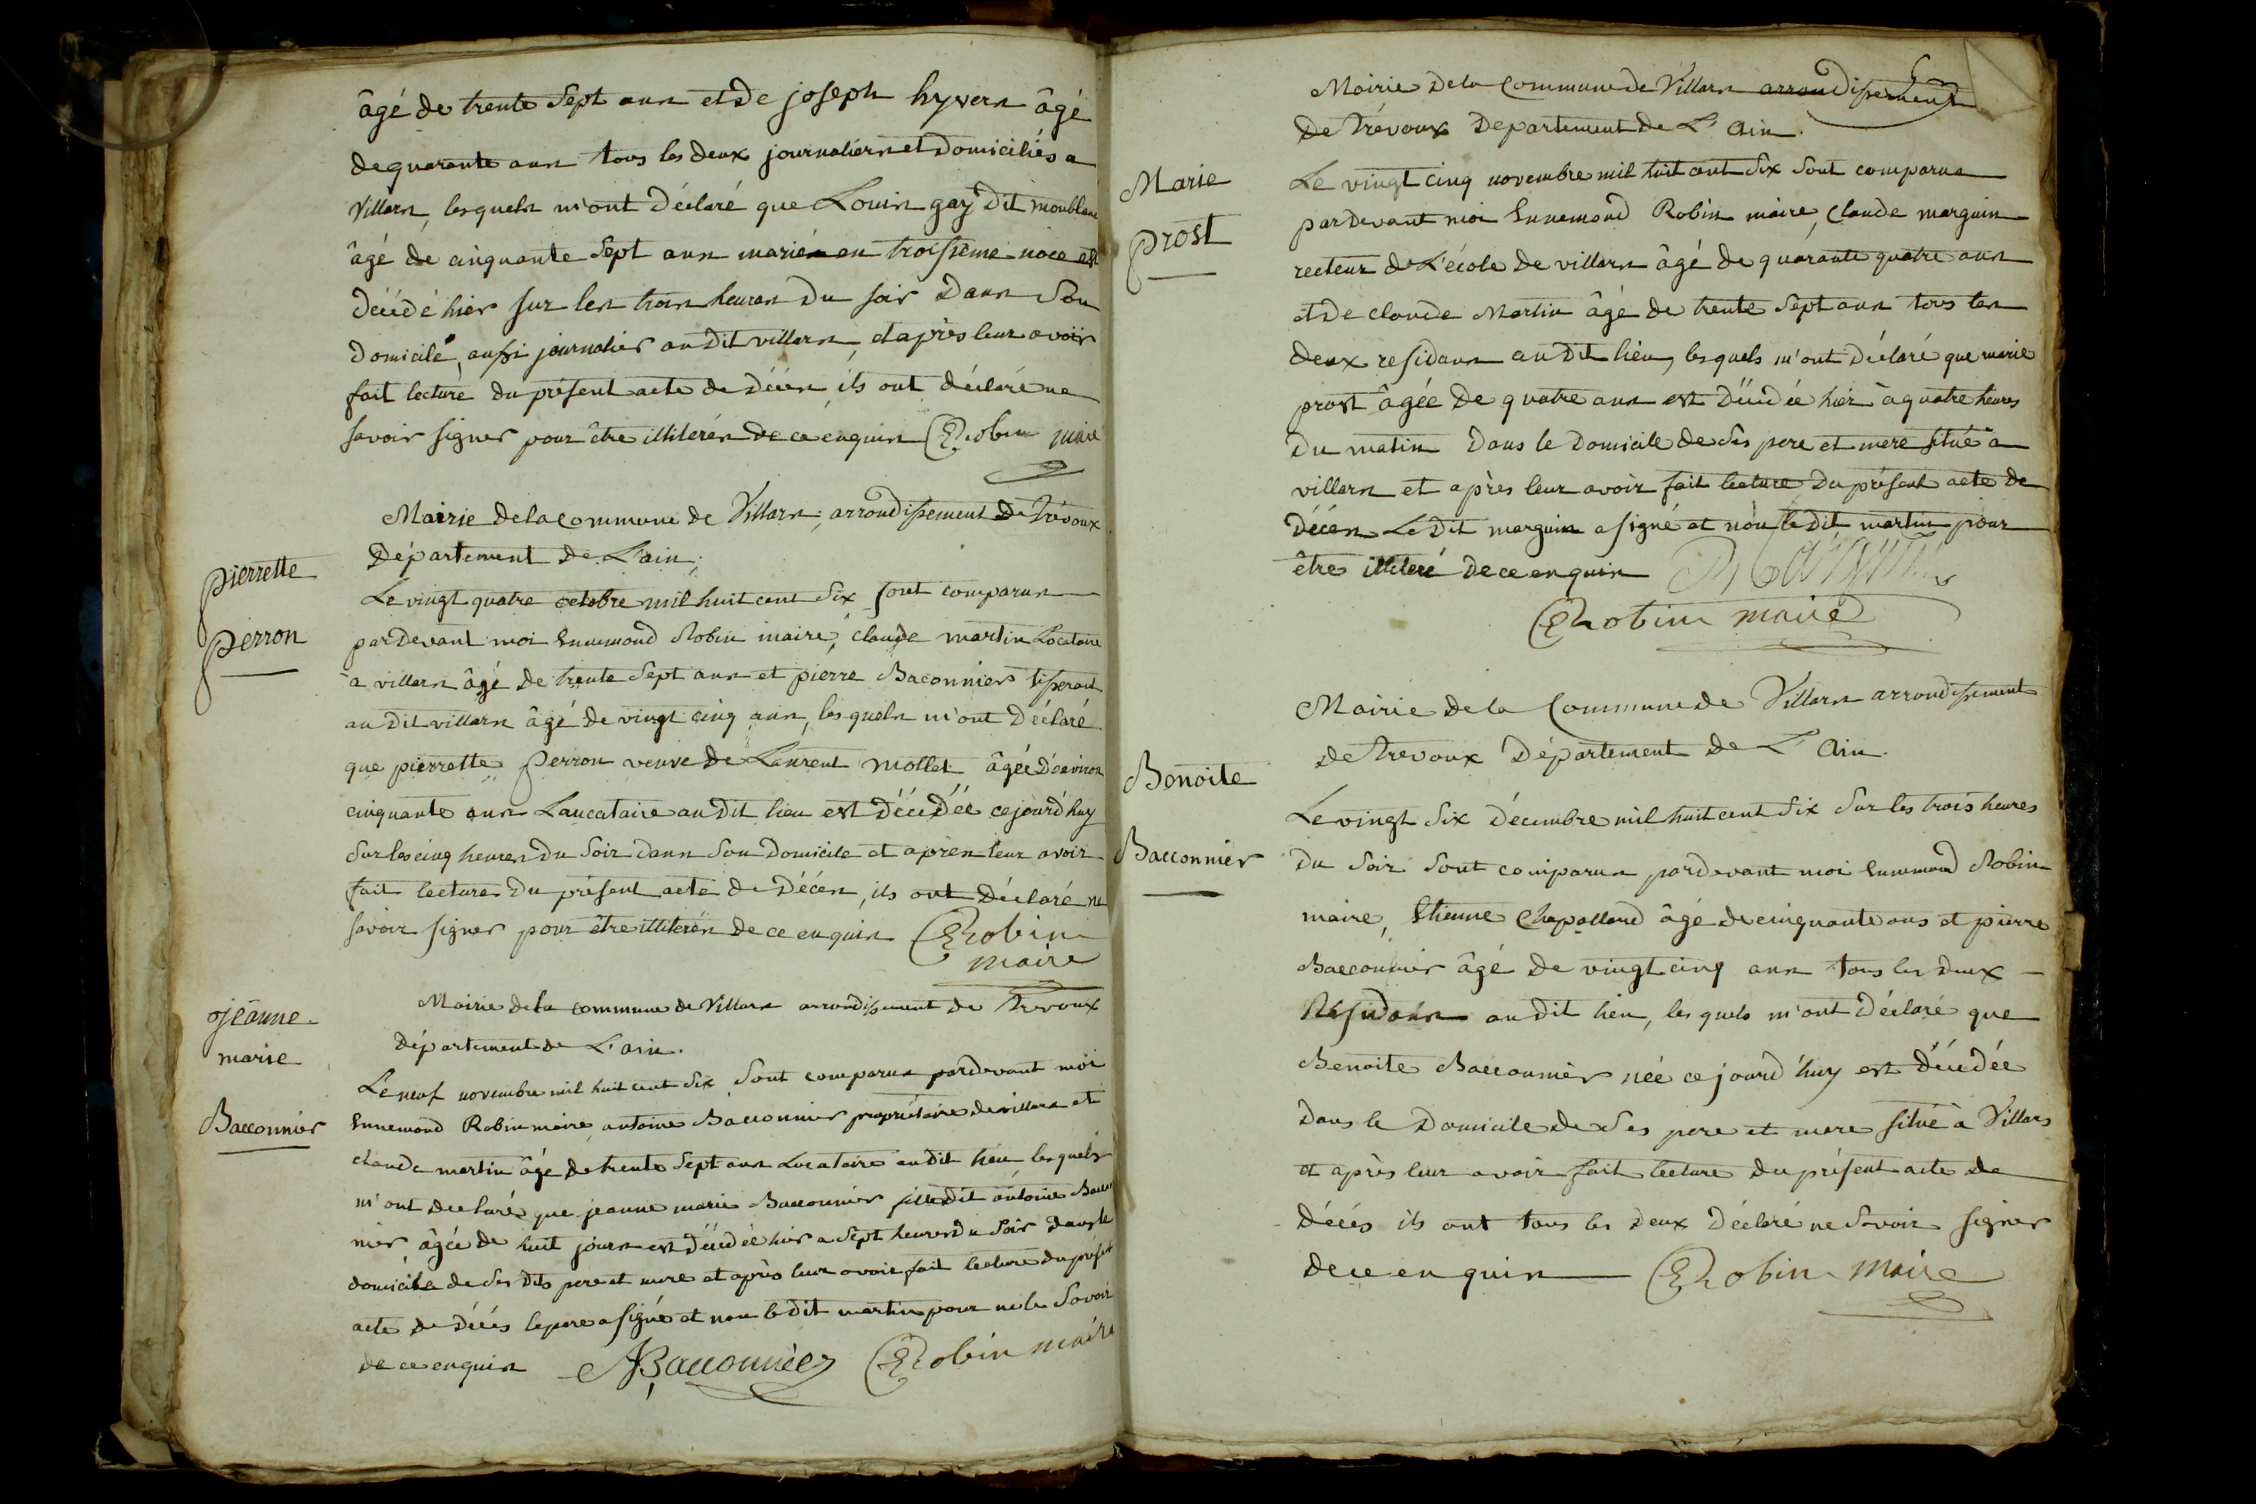 âgé de trente sept ans et de joseph hyvern âgé
de quarante ans tous les deux journaliers et domiciliés a
Villars, lesquels m'ont déclaré que Louis gay dit monblanc
âgé de cinquante sept ans marié en troisieme noce est
décédé hier sur les trois heures du soir dans son
domicile, aussi journalier au dit villars, et après leur avoir
fait lecture du présent acte de décès, ils ont déclaré ne
savoir signer pour être illiterés de ce enquis ERobin maire
Mairie de la commune de Villars, arrondissement de Trévoux
Département de L'ain.
pierrette
perron
Le vingt quatre octobre mil huit cent six sont comparus
pardevant moi Ennemond Robin maire, claude martin Locataire
à villars âgé de trente sept ans et pierre Baconnier tisserant
au dit villars âgé de vingt cinq ans, lesquels m'ont déclaré
que pierrette perron veuve de Laurent mollet âgée d'environ
cinquante ans Laucataire au dit lieu est décédée cejourd'huy
sur les cinq heures du soir dans son domicile et apres leur avoir
fait lecture du présent acte de décès, ils ont déclaré ne
savoir signer pour être illiterés de ce enquis ERobin
maire
Mairie de la commune de Villars arrondissement de Trevoux
Département de L'ain.
jeanne
marie
Bacconnier
Le neuf novembre mil huit cent six sont comparus pardevant moi
Ennemond Robin maire, antoine Bacconnier propriétaire de villars et
claude martin âgé de trente sept ans Locataire au dit lieu lesquels
m'ont declaré que jeanne marie Bacconnier fille dit antoine Baccon
nier, âgée de huit jours est décédée hier a sept heures du soir dans le
domicile de ses dits pere et mere et après leur avoir fait lecture du présent
acte de décés le pere a signé et non le dit martin pour ne le savoir
de ce enquis ABacconnier ERobin maire
Mairie de la Commune de Villars arrondissement
de Trévoux Departement de L'Ain.
Marie
prost
Le vingt cinq novembre mil huit cent six sont comparus
pardevant moi Ennemond Robin maire, Claude marguin
recteur de L'école de villars âgé de quarante quatre ans
et de claude Martin âgé de trente sept ans tous les
deux residans au dit lieu, lesquels m'ont déclaré que marie
prost âgée de quatre ans est décédée hier à quatre heures
du matin dans le domicile de ses pere et mere situé à
villars et après leur avoir fait lecture du présent acte de
décès Le dit marguin a signé et non le dit martin pour
être illiteré de ce enquis Marguin
ERobin maire
Mairie de la Commune de Villars arrondissement
de Trevoux Département de L'Ain.
Benoite
Bacconnier
Le vingt six décembre mil huit cent six sur les trois heures
du soir sont comparus pardevant moi Ennemond Robin
maire, Etienne Chapolland âgé de cinquante ans et pierre
Bacconnier âgé de vingt cinq ans tous les deux
Residans au dit lieu, lesquels m'ont déclaré que
Benoite Bacconnier née cejourd'huy est décédée
dans le domicile de ses pere et mere situé à Villars
et après leur avoir fait lecture du présent acte de
décés ils ont tous les deux déclaré ne savoir signer
de ce enquis ERobin maire